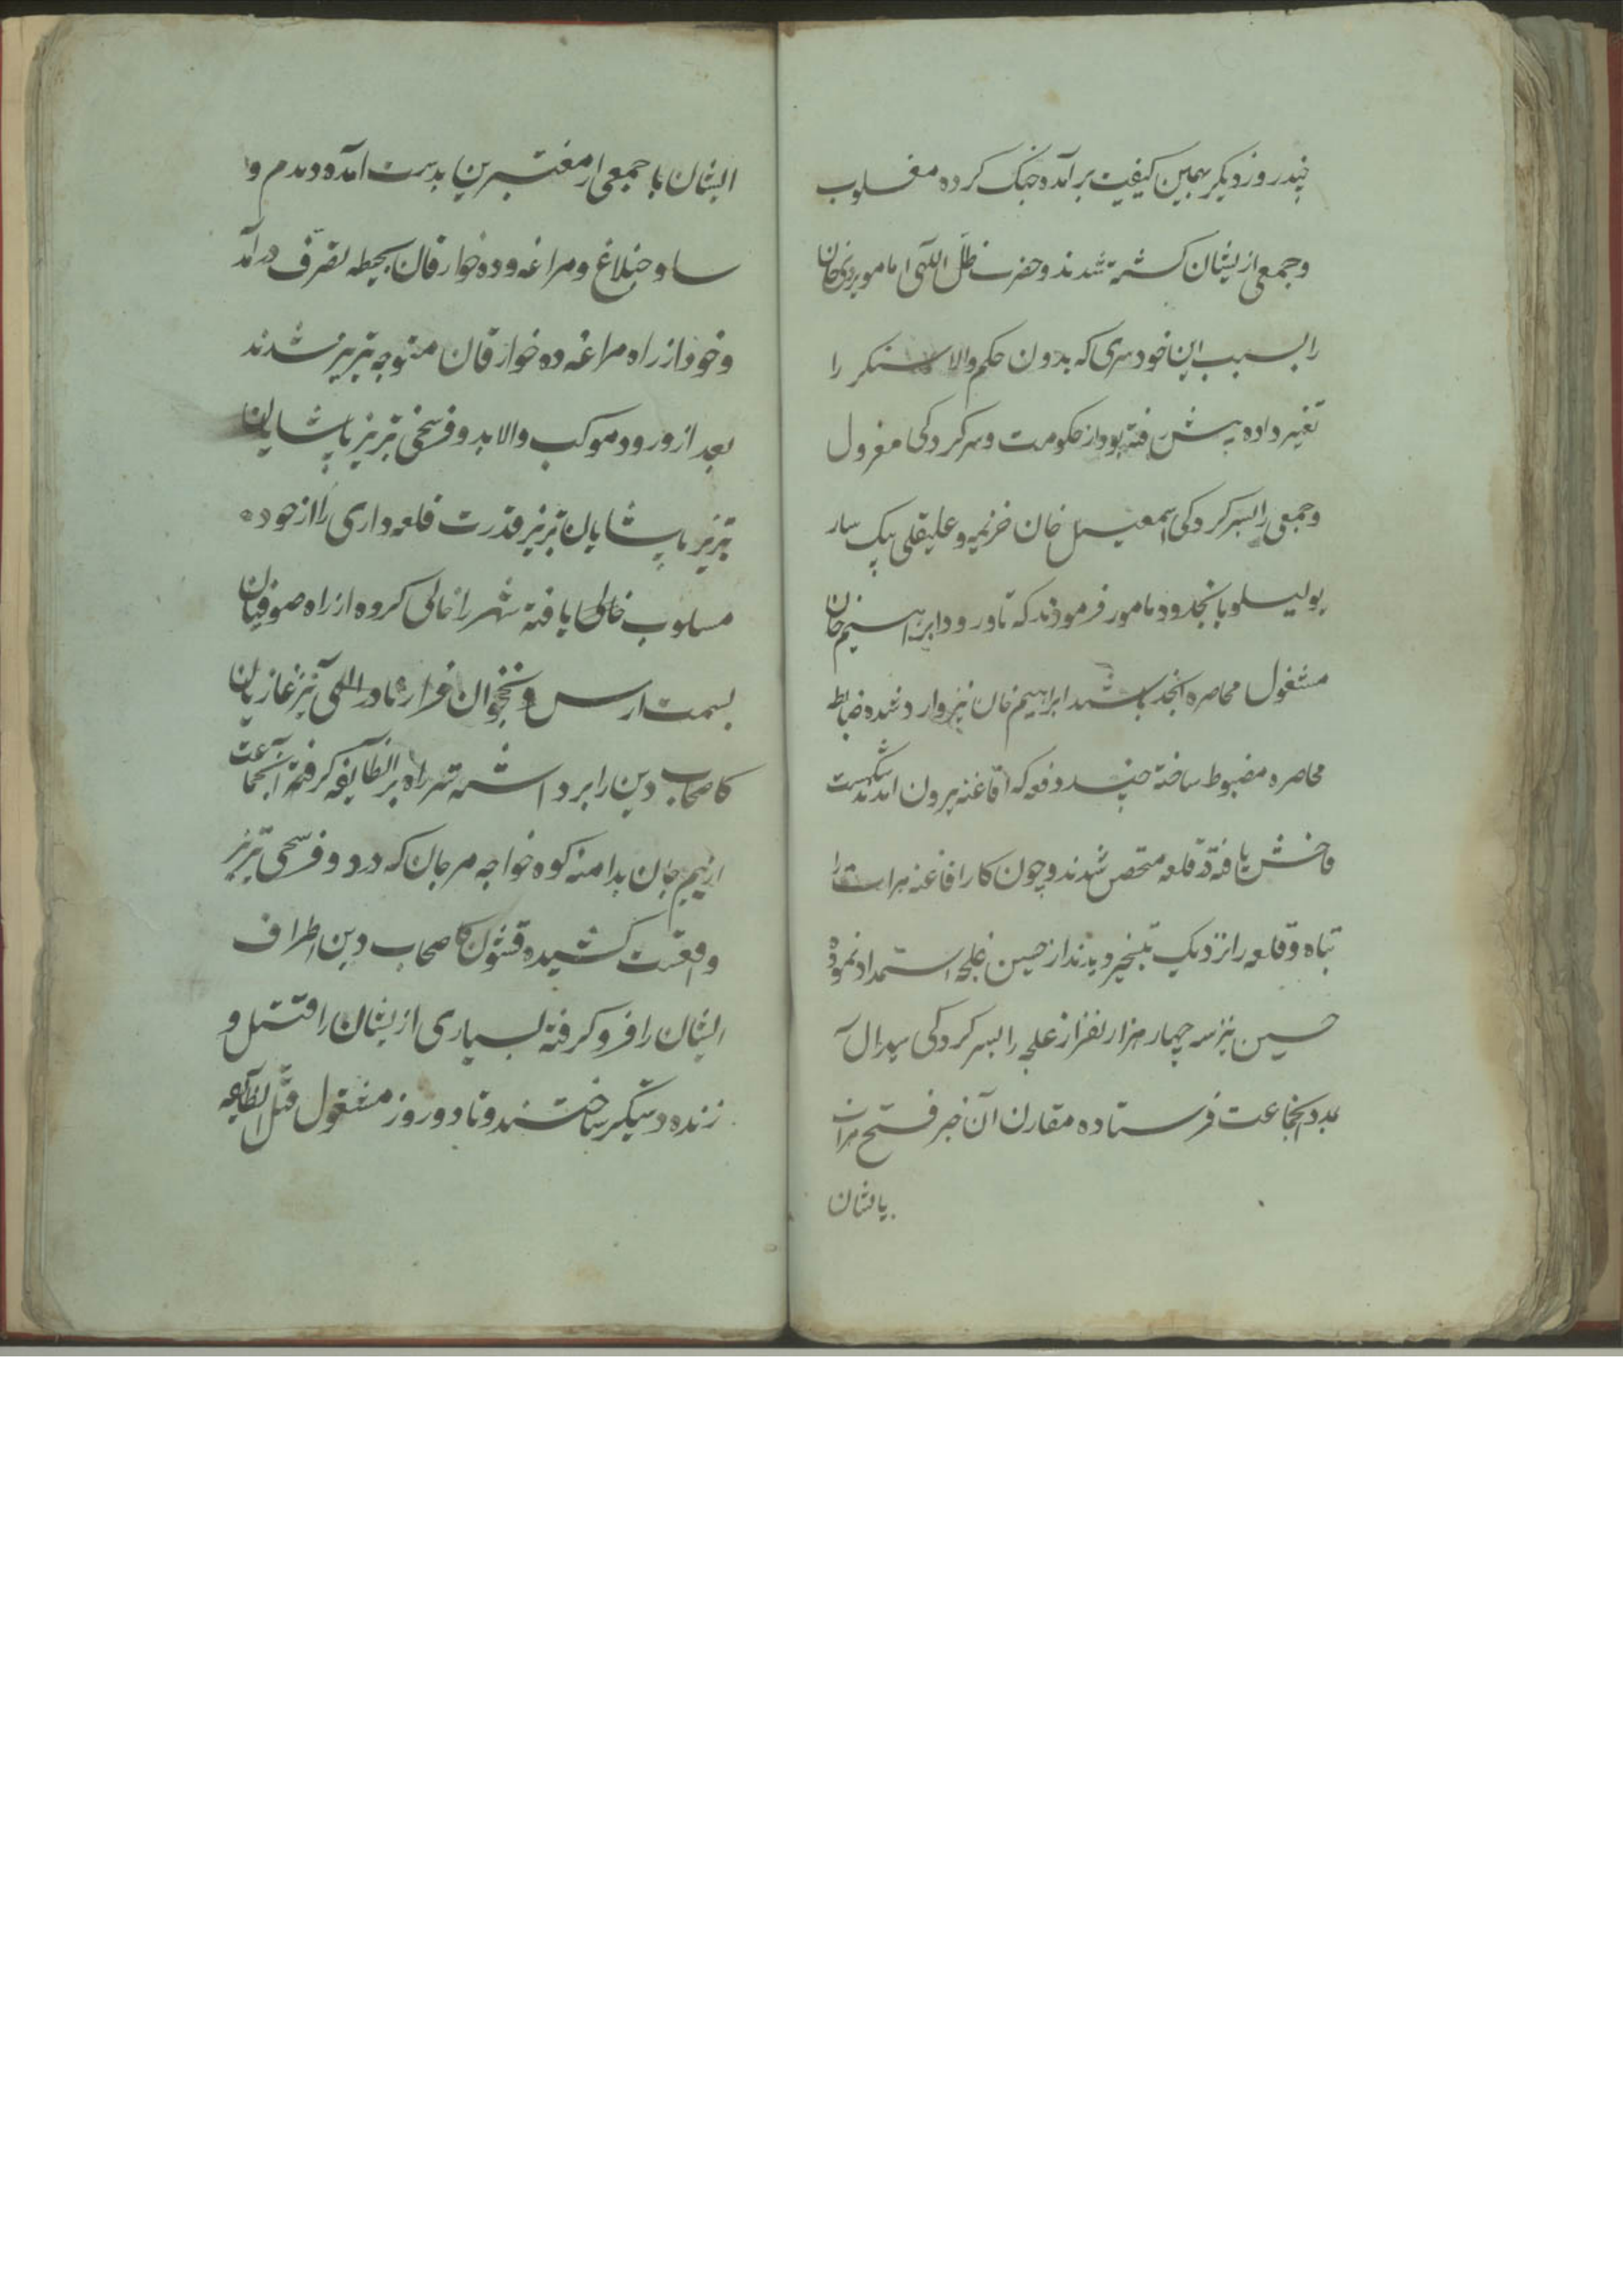 چند روز دیگر بهمین کیفیت برآمده جنک کرده مغلوب
و جمعی ازیشان کشته شدند و حضرت ظل اللهی امامویردی خان
را بسبب این خودسری که بدون حکم والا سنکر را
تغییر داده پیش رفته بود از حکومت و سرکردکی معزول
و جمعی را بسرکردکی اسمعیل خان خزیمه و علیقلی بیک سار
یولیسلو بانحدود مامور فرمودند که تا ورود ابراهیم خان
مشغول محاصره انجد باشند ابراهیم خان نیز وارد شده ضابطه
محاصره مضبوط ساخته چند دفعه که افاغنه بیرون امدند شکست
فاحش یافته در قلعه متحصن شدند و چون کار افاغنه هرات را
تباه و قلعه را نزدیک بتسخیر دیدند از حسین غلجه استمداد نموده
حسین نیز سه چهار هزار نفر از غلجه را بسرکردکی سیدال
بمدد انجماعت فرستاده مقارن آن خبر فتح هرات
بایشان
ایشان با جمعی از معتبرین بدست امده و دمدم و
ساوجبلاغ و مراغه و ده خوارقان بحیطه تصرف درآمد
و خود از راه مراغه ده خوارقان متوجه تبریز شدند
بعد از ورود موکب والا بدو فرسخی تبریز پاشایان
تبریز پاشایان تبریز قدرت قلعه داری را از خود
مسلوب خالی یافته شهر را خالی کرده از راه صوفیان
بسمت ارس و نخجوان فرار نادر اللهی نیز غازیان
کاصحاب دین را برداشته سر راه بر انطایفه کرفته انجماعت
از بیم جان بدامنه کوه خواجه مرجان که در دو فرسخی تبریز
واقعست کشیده قشون کاصحاب دین اطراف
ایشان را فرو کرفته بسیاری ازیشان را قتیل و
زنده دستکیر ساختند و تا دو روز مشغول قتل انطایفه